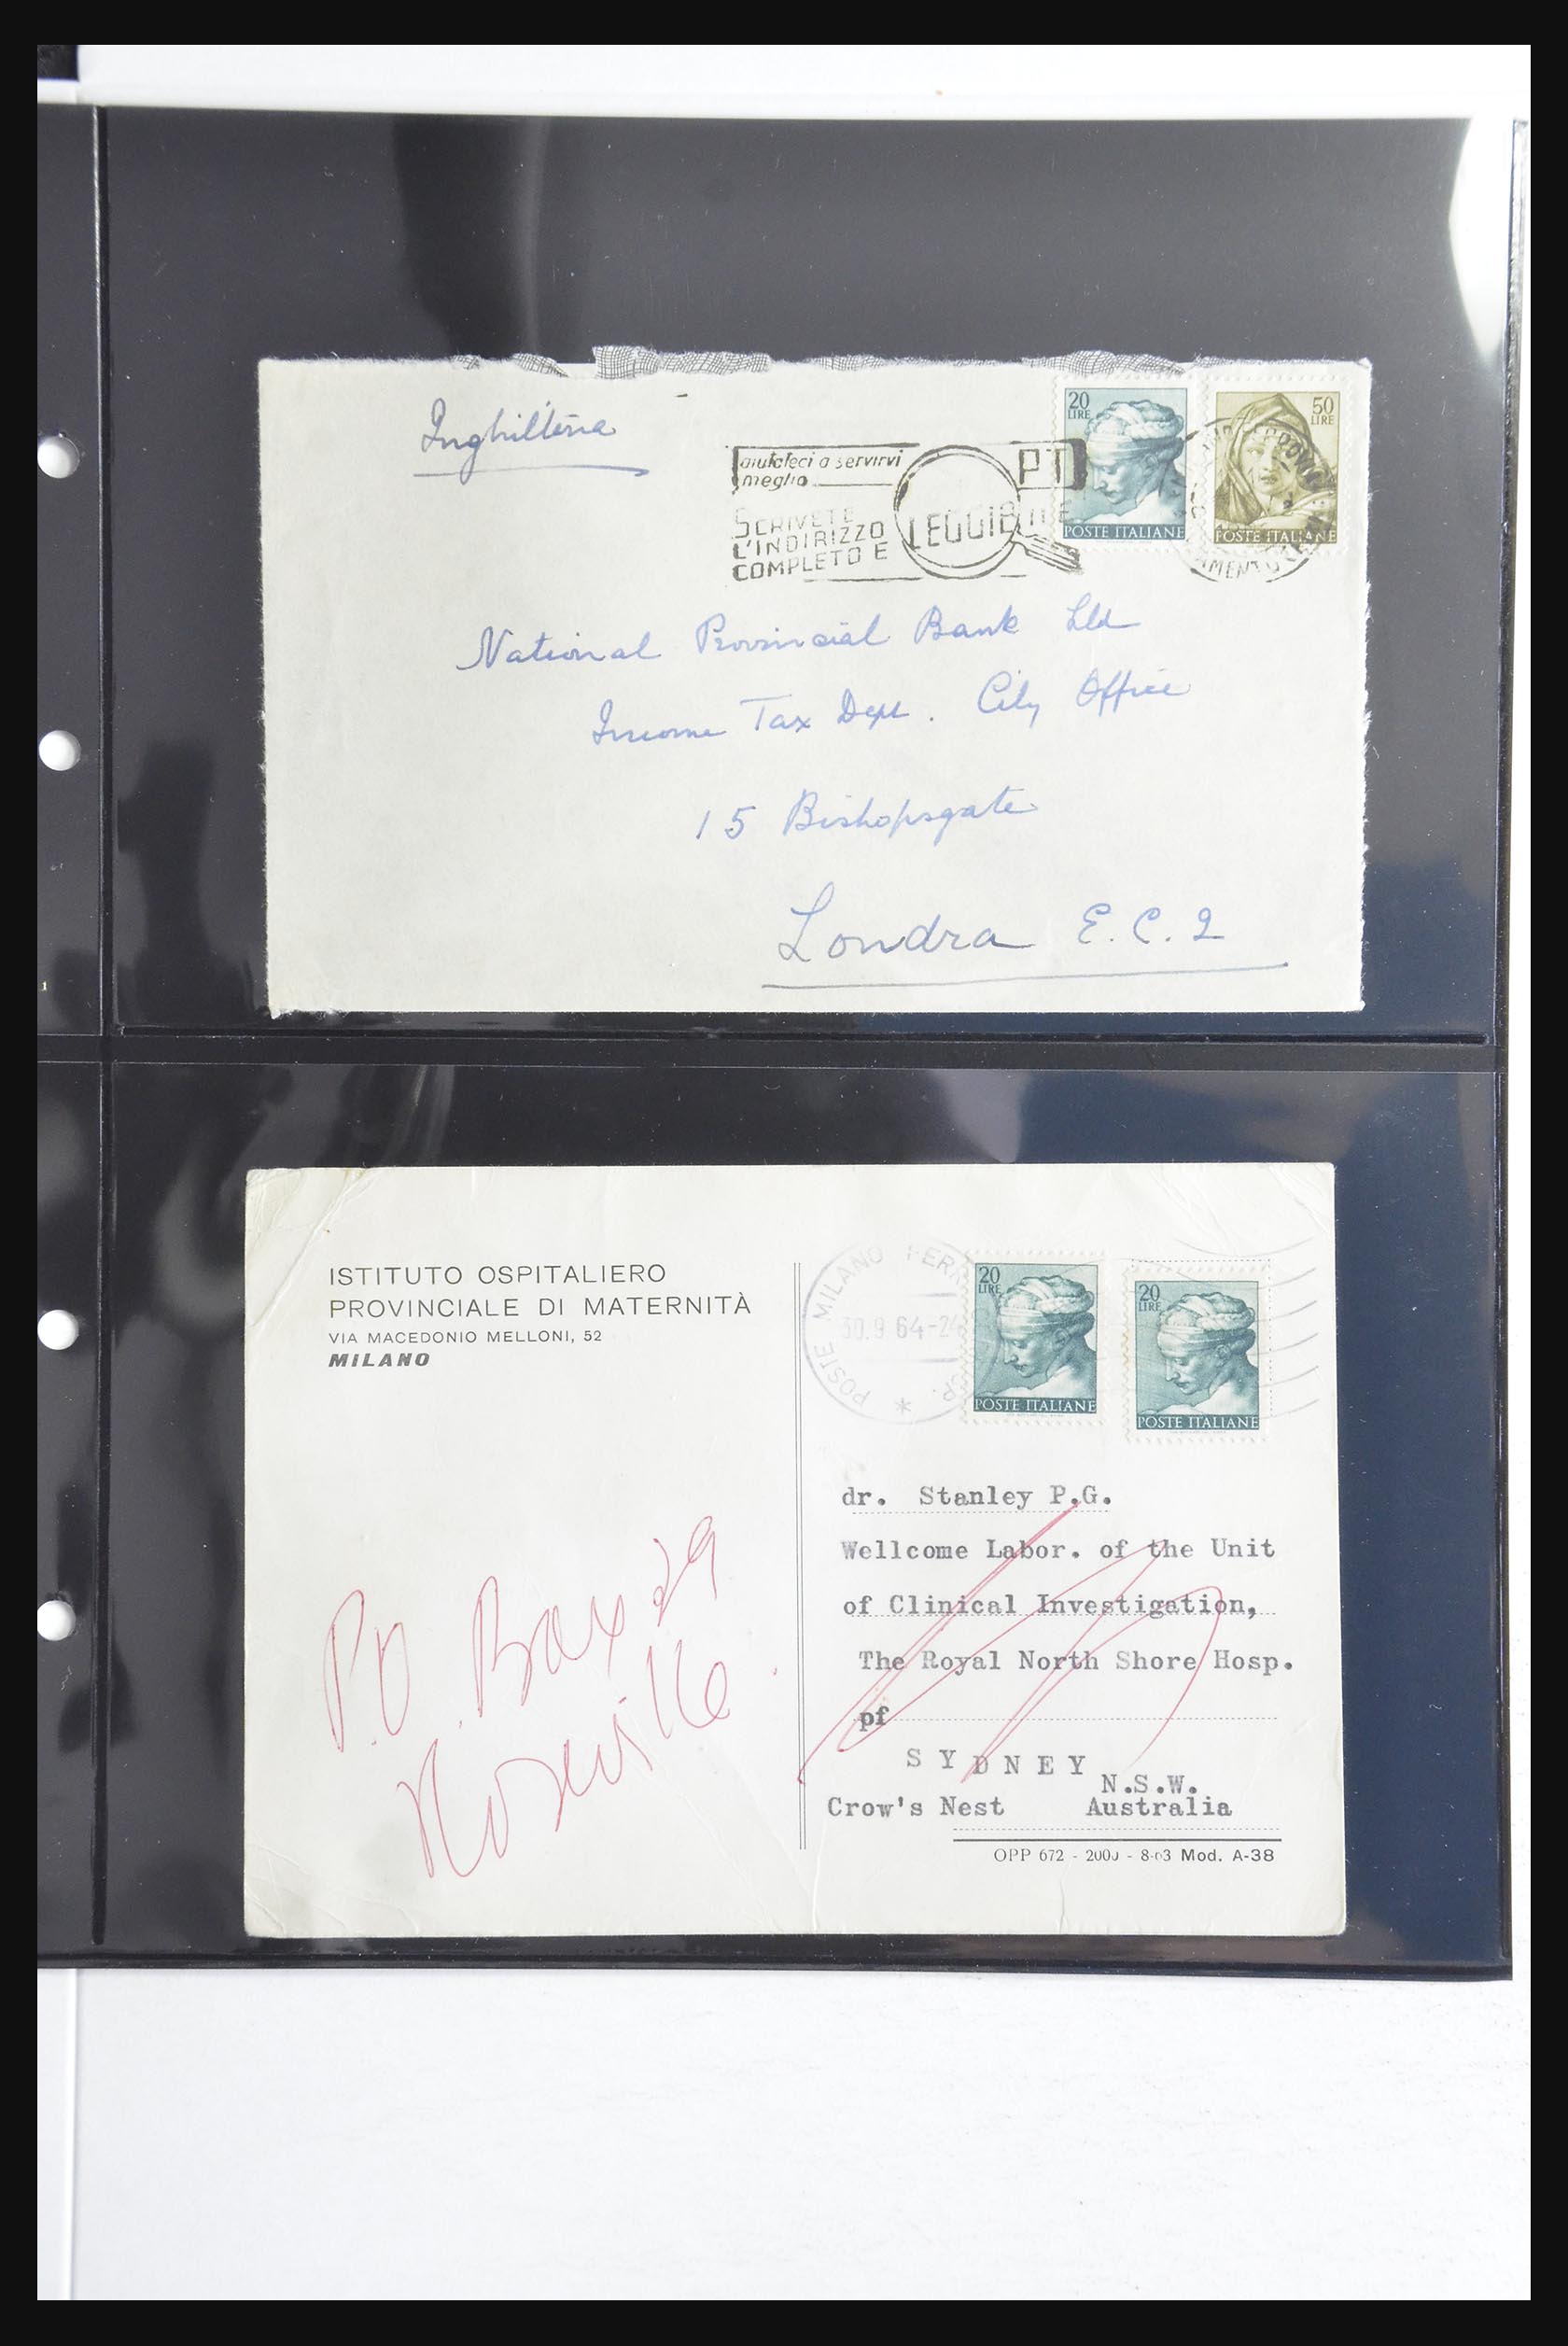 Inghilterra
aiutateci a servirvi
meglio
SCRIVETE
L'INDIRIZZO
COMPLETO E
LEGGIBILE
PT
20
LIRE
POSTE ITALIANE
50
LIRE
POSTE ITALIANE
National Provincial Bank Ltd
Income Tax Dept. City Office
15 Bishopsgate
Londra E.C.2
ISTITUTO OSPITALIERO
PROVINCIALE DI MATERNITÀ
VIA MACEDONIO MELLONI, 52
MILANO
POSTE MILANO FERR
30.9.64-24
20
LIRE
POSTE ITALIANE
20
LIRE
POSTE ITALIANE
dr. Stanley P.G.
Wellcome Labor. of the Unit
of Clinical Investigation,
The Royal North Shore Hosp.
pf
SYDNEY
N.S.W.
Crow's Nest Australia
OPP 672 - 2000 - 8-63 Mod. A-38
P.O. Box 29
Roseville